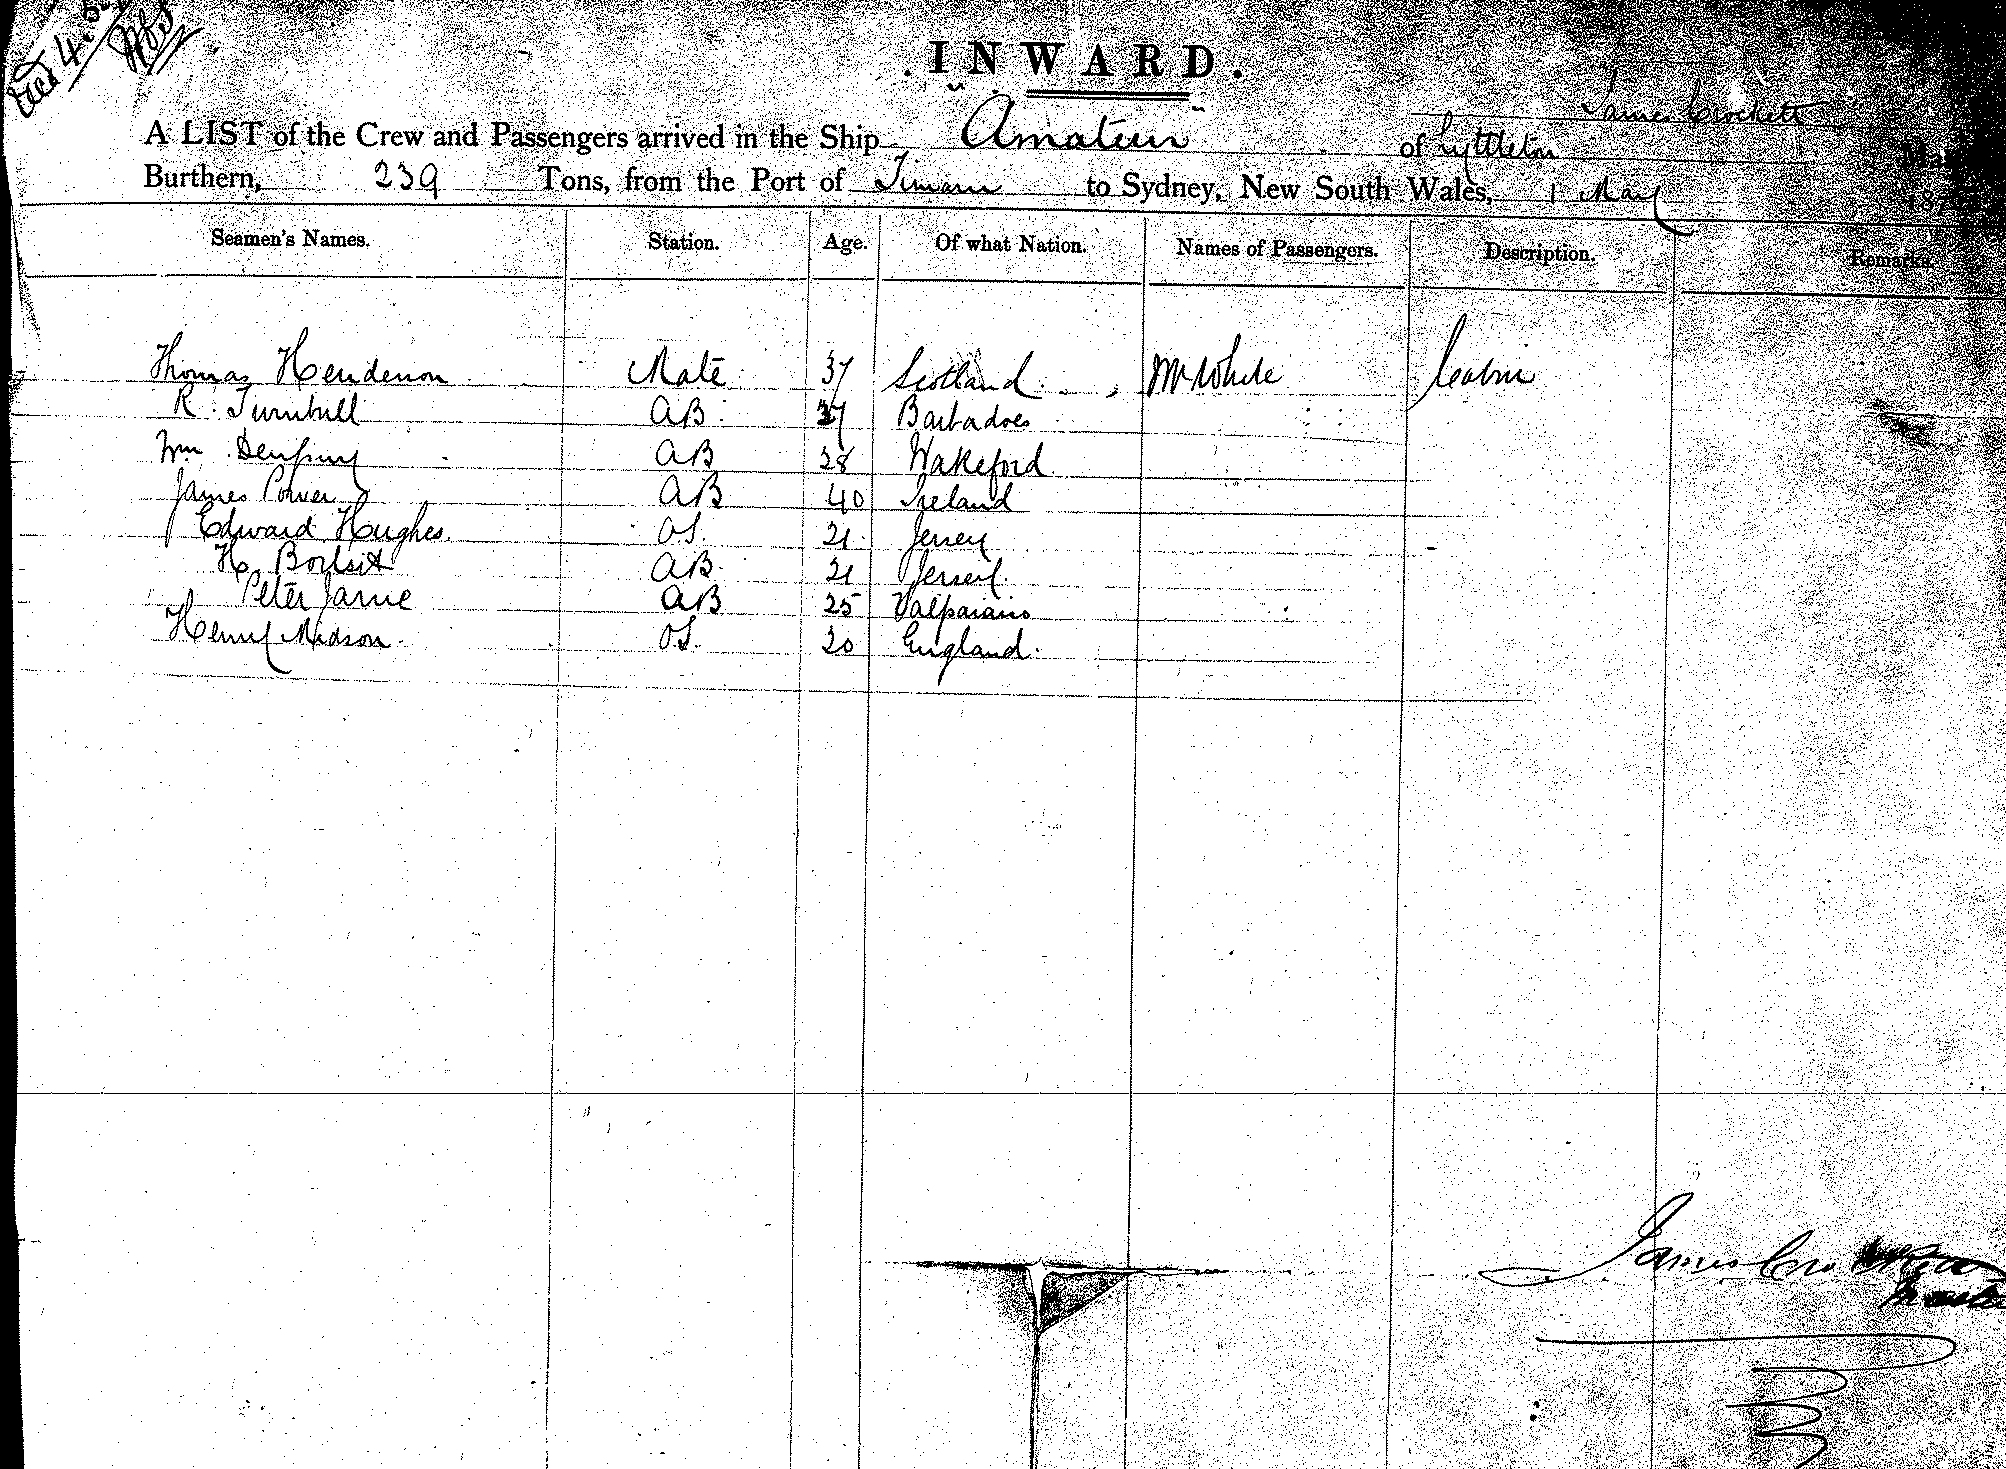 INWARD.
James Crockett
A LIST of the Crew and Passengers arrived in the Ship "Amateur" of Lyttleton
Burthern, 239 Tons, from the Port of Timaru to Sydney, New South Wales, 1 May 187
Seamen's Names. Station. Age. Of what Nation. Names of Passengers. Description. Remarks.
Thomas Henderson Mate 37 Scotland Mr White Cabin
R. Turnbull AB 37 Barbadoes
Wm AB 28 Wakeford
James Power AB 40 Ireland
Edward Hughes OS. 21 Jersey
H. AB 21 Jersey
Peter AB 25 Valparaiso
Henry Midson OS. 20 England
James
Master